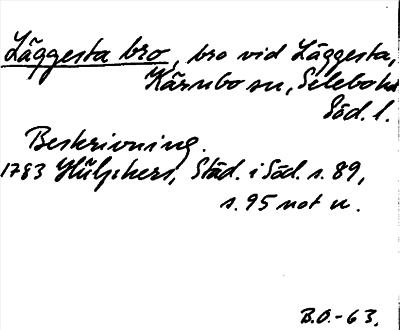 Läggesta bro, bro vid Läggesta,
Kärnbo sn, Selebo hd
Söd. l.
Beskrivning.
1783 Hülphers, Städ. i Söd. s. 89,
s. 95 not u.
B.O.-63.